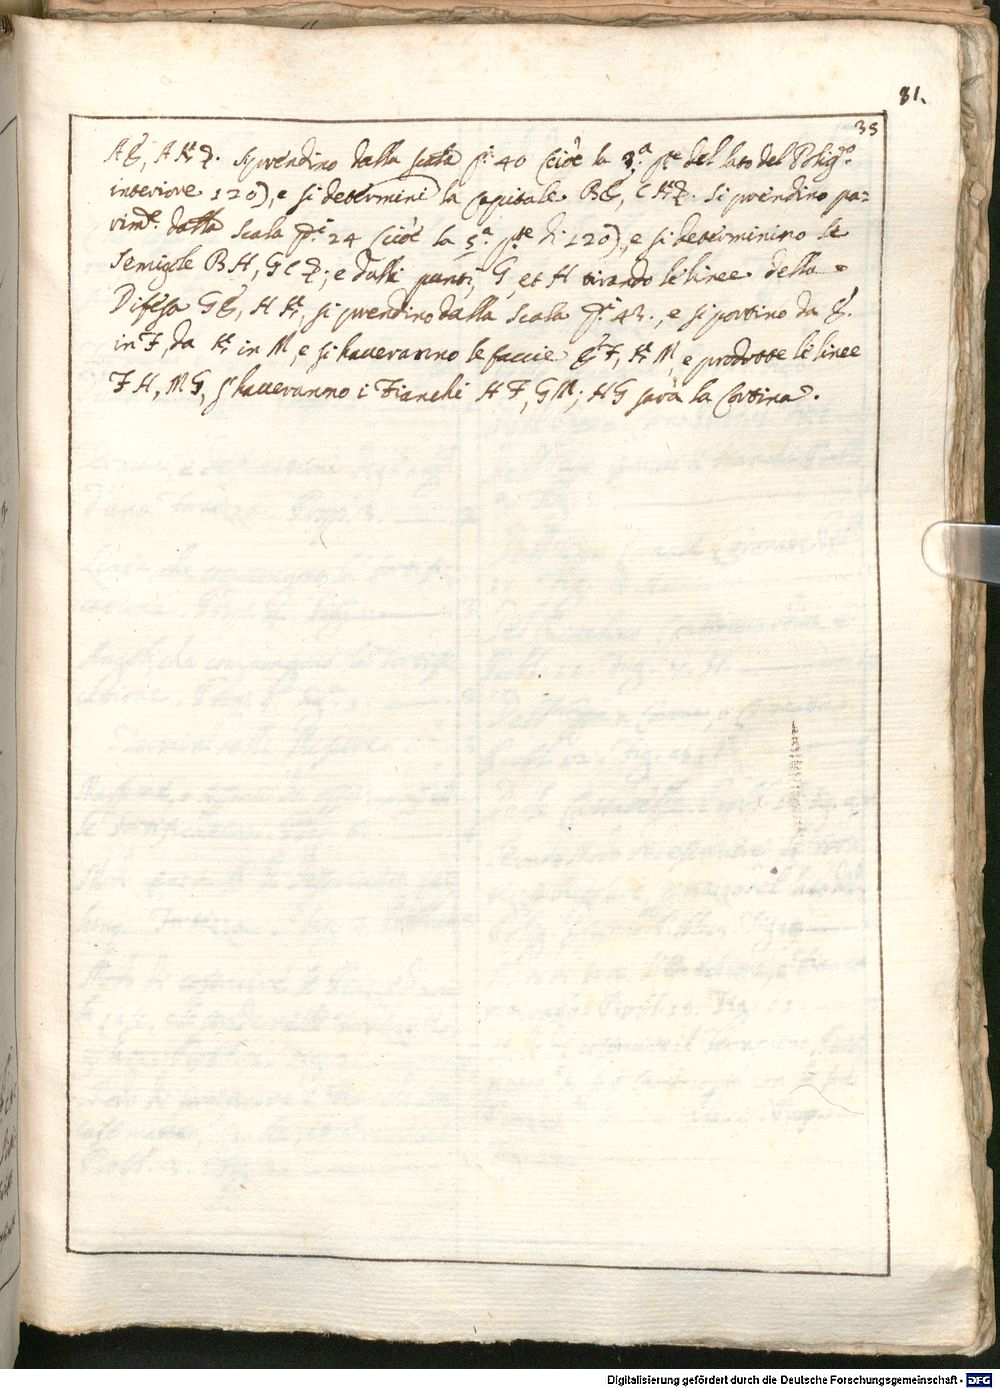 81.
38
AE, AK. Si prendino dalla scala p.i 40 (cioè la 3.a p.te del lato del Polig.o
interiore 120), e si determini la Capitale BE, CK. Si prendino pa-
rim.te dalla Scala p.i 24 (cioè la 5.a p.te di 120), e si determinino le
Semigole BH, GC; e dalli punti, G, et H tirando le linee della
Difesa GE, HK, si prendino dalla Scala p.i 43., e si portino da E.
in F, da K in M, e si haveranno le faccie EF, KM, e prodotte le linee
FH, MG, s'haveranno i Fianchi HF, GM; HG sarà la Cortina.
Digitalisierung gefördert durch die Deutsche Forschungsgemeinschaft - DFG